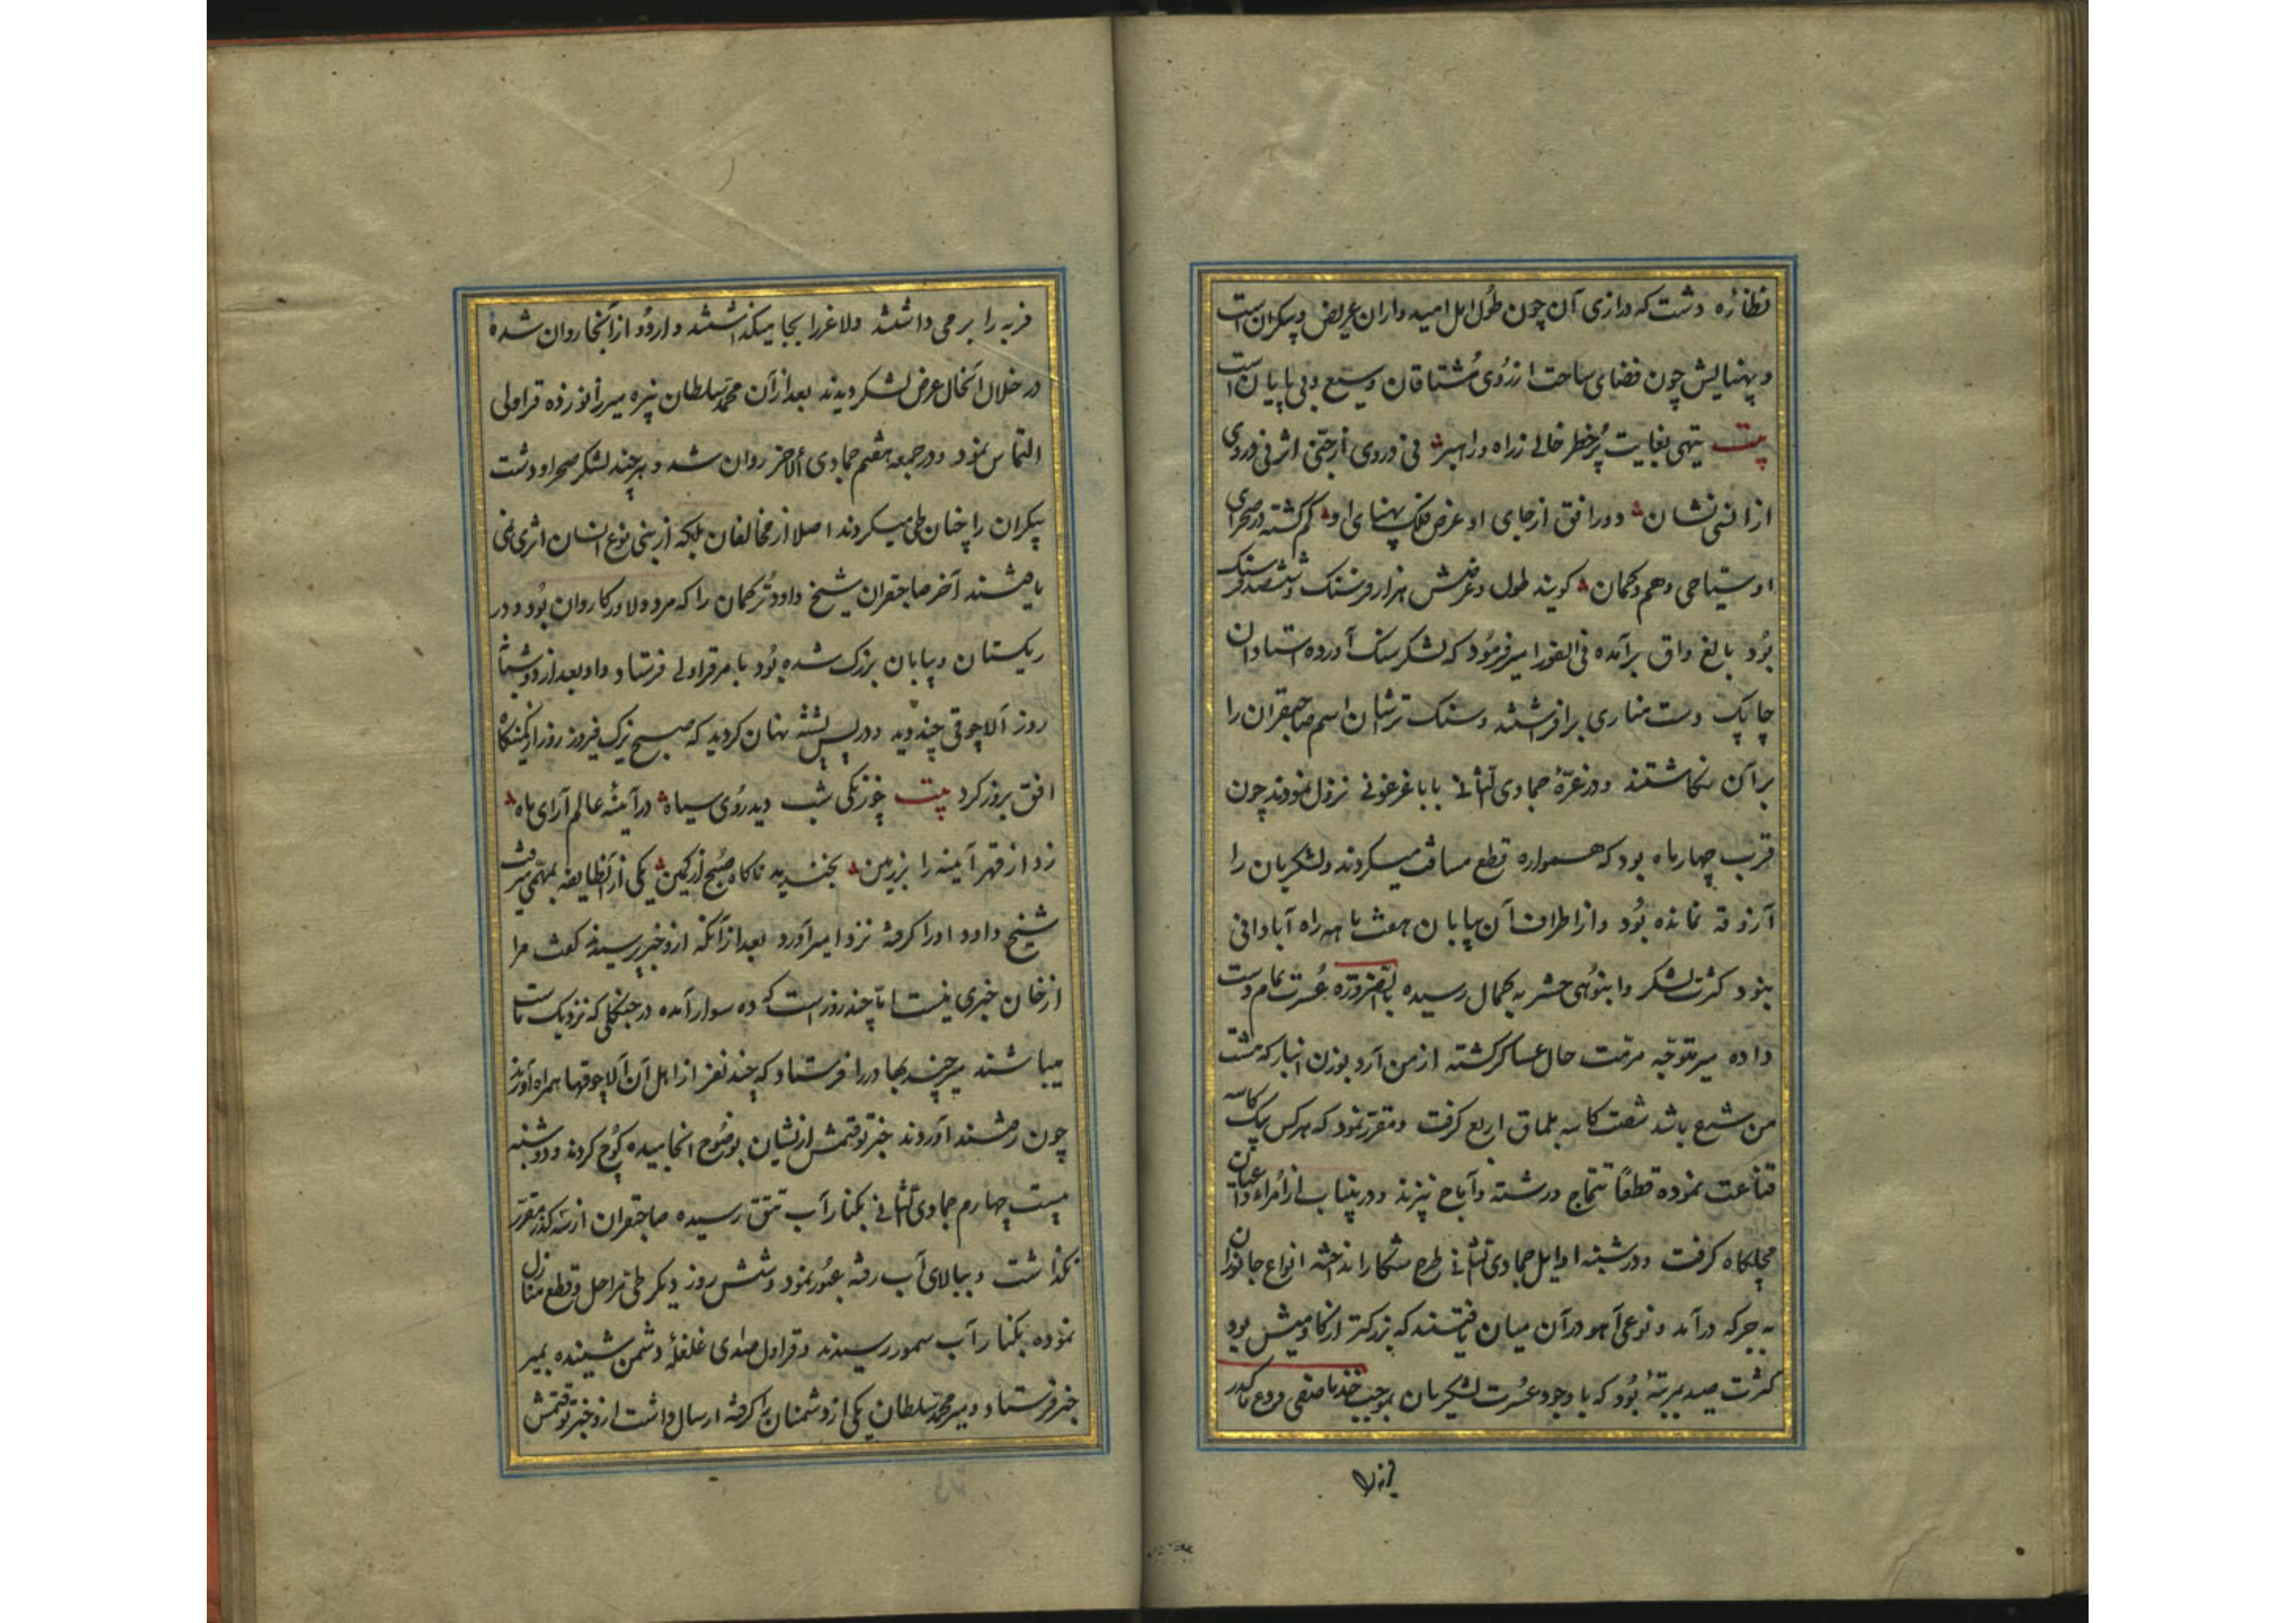 نظارهٔ دشت که درازی آن چون طول امل امیدواران عریض و بیکران است
و پهنایش چون فضای ساحت ارزوی مشتاقان وسیع و بی پایان است
بیت تیهی بغایت پرخطر خالی زراه و راهبر نی دروی از جنی اثر نی دروی
از انسی نشان دورافق از جای او عرض فلک پهنای او گم گشته در صحرای
او سیاحی وهم و گمان گویند طول و عرضش هزار فرسنک و ششصد فرسنک
بود بالغ داق برآمده فی الفور امیر فرمود که لشکر سنک آورده استادان
چاپک دست مناری برافراشتند و سنک تراشان اسم صاحبقران را
بر آن نکاشتند و در غرهٔ جمادی الثانی بابا غرغونی نزول نمودند چون
قرب چهار ماه بود که همواره قطع مسافت میکردند و لشکریان را
آزوقه نمانده بود و از اطراف آن بیابان هفت ماهه راه آبادانی
نبود کثرت لشکر و انبوهی حشر به کمال رسیده بالضروره عسرت تمام دست
داده میر متوجه مرمت حال عساکر گشته از من آرد بوزن انبار که هشت
من شرع باشد شصت کاسه بلماق اربع کرفت و مقرر نمود که هر کس بیک کاسه
قناعت نموده قطعاً تتماج و رشته و آباج نپزند و درینباب از امراء و اعیان
مچلکاه کرفت و در شنبه اوایل جمادی الثانی طرح شکار انداخته انواع جانوران
به جرکه درآمد و نوعی آهو در آن میان یافتند که بزرکتر از کاومیش بود
کثرت صید بمرتبهٔ بود که با وجود عسرت لشکریان بموجب خذ ما صفی و دع ما کدر
فربه را
فربه را برمی داشتند و لاغر را بجا میکذاشتند و اردو از آنجا روان شده
در خلال آنحال عرض لشکر دیدند بعد از آن محمد سلطان نبیره میرزا نو زده قراولی
التماس نمود و در جمعه هفتم جمادی الاخر روان شد و هر چند لشکر صحرا و دشت
بیکران را چنان طی میکردند اصلا از مخالفان بلکه از بنی نوع انسان اثری نمی
یافتند آخر صاحبقران شیخ داود ترکمان را که مرد دلاور کاروان بود و در
ریکستان و بیابان بزرک شده بود بامر قراولی فرستاد و او بعد از دو شبا
روز آلاچوقی چند دید و در پس پشته نهان کردید که صبح ترک فیروز روز از کمینکاه
افق بروز کرد بیت چو زنکی شب دید روی سیاه در آینهٔ عالم آرای ماه
زد از قهر آیینه را بر زمین بخندید ناکاه صبح از کمین یکی از آنطایفه بمهمی میرفت
شیخ داود او را کرفته نزد امیر آورد بعد از آنکه ازو خبر پرسیدند کفت مرا
از خان خبری نیست اما چند روز است که ده سوار آمده در جنکلی که نزدیک ماست
میباشند میر چند بهادر را فرستاد که چند نفر از اهل آن آلاچوقها همراه آورند
چون رفتند آوردند خبر توقتمش ازیشان بوضوح انجامیده کوچ کردند و دوشنبه
بیست چهارم جمادی الثانی بکنار آب تتق رسیده صاحبقران از سه کذر مقرر
نکذاشت و ببالای آب رفته عبور نمود و شش روز دیکر طی مراحل و قطع منازل
نموده بکنار آب سمور رسیدند و قراول صدای غلغلهٔ دشمن شنیده بمیر
خبر فرستاد و میر محمد سلطان یکی از دشمنان را کرفته ارسال داشت ازو خبر توقتمش